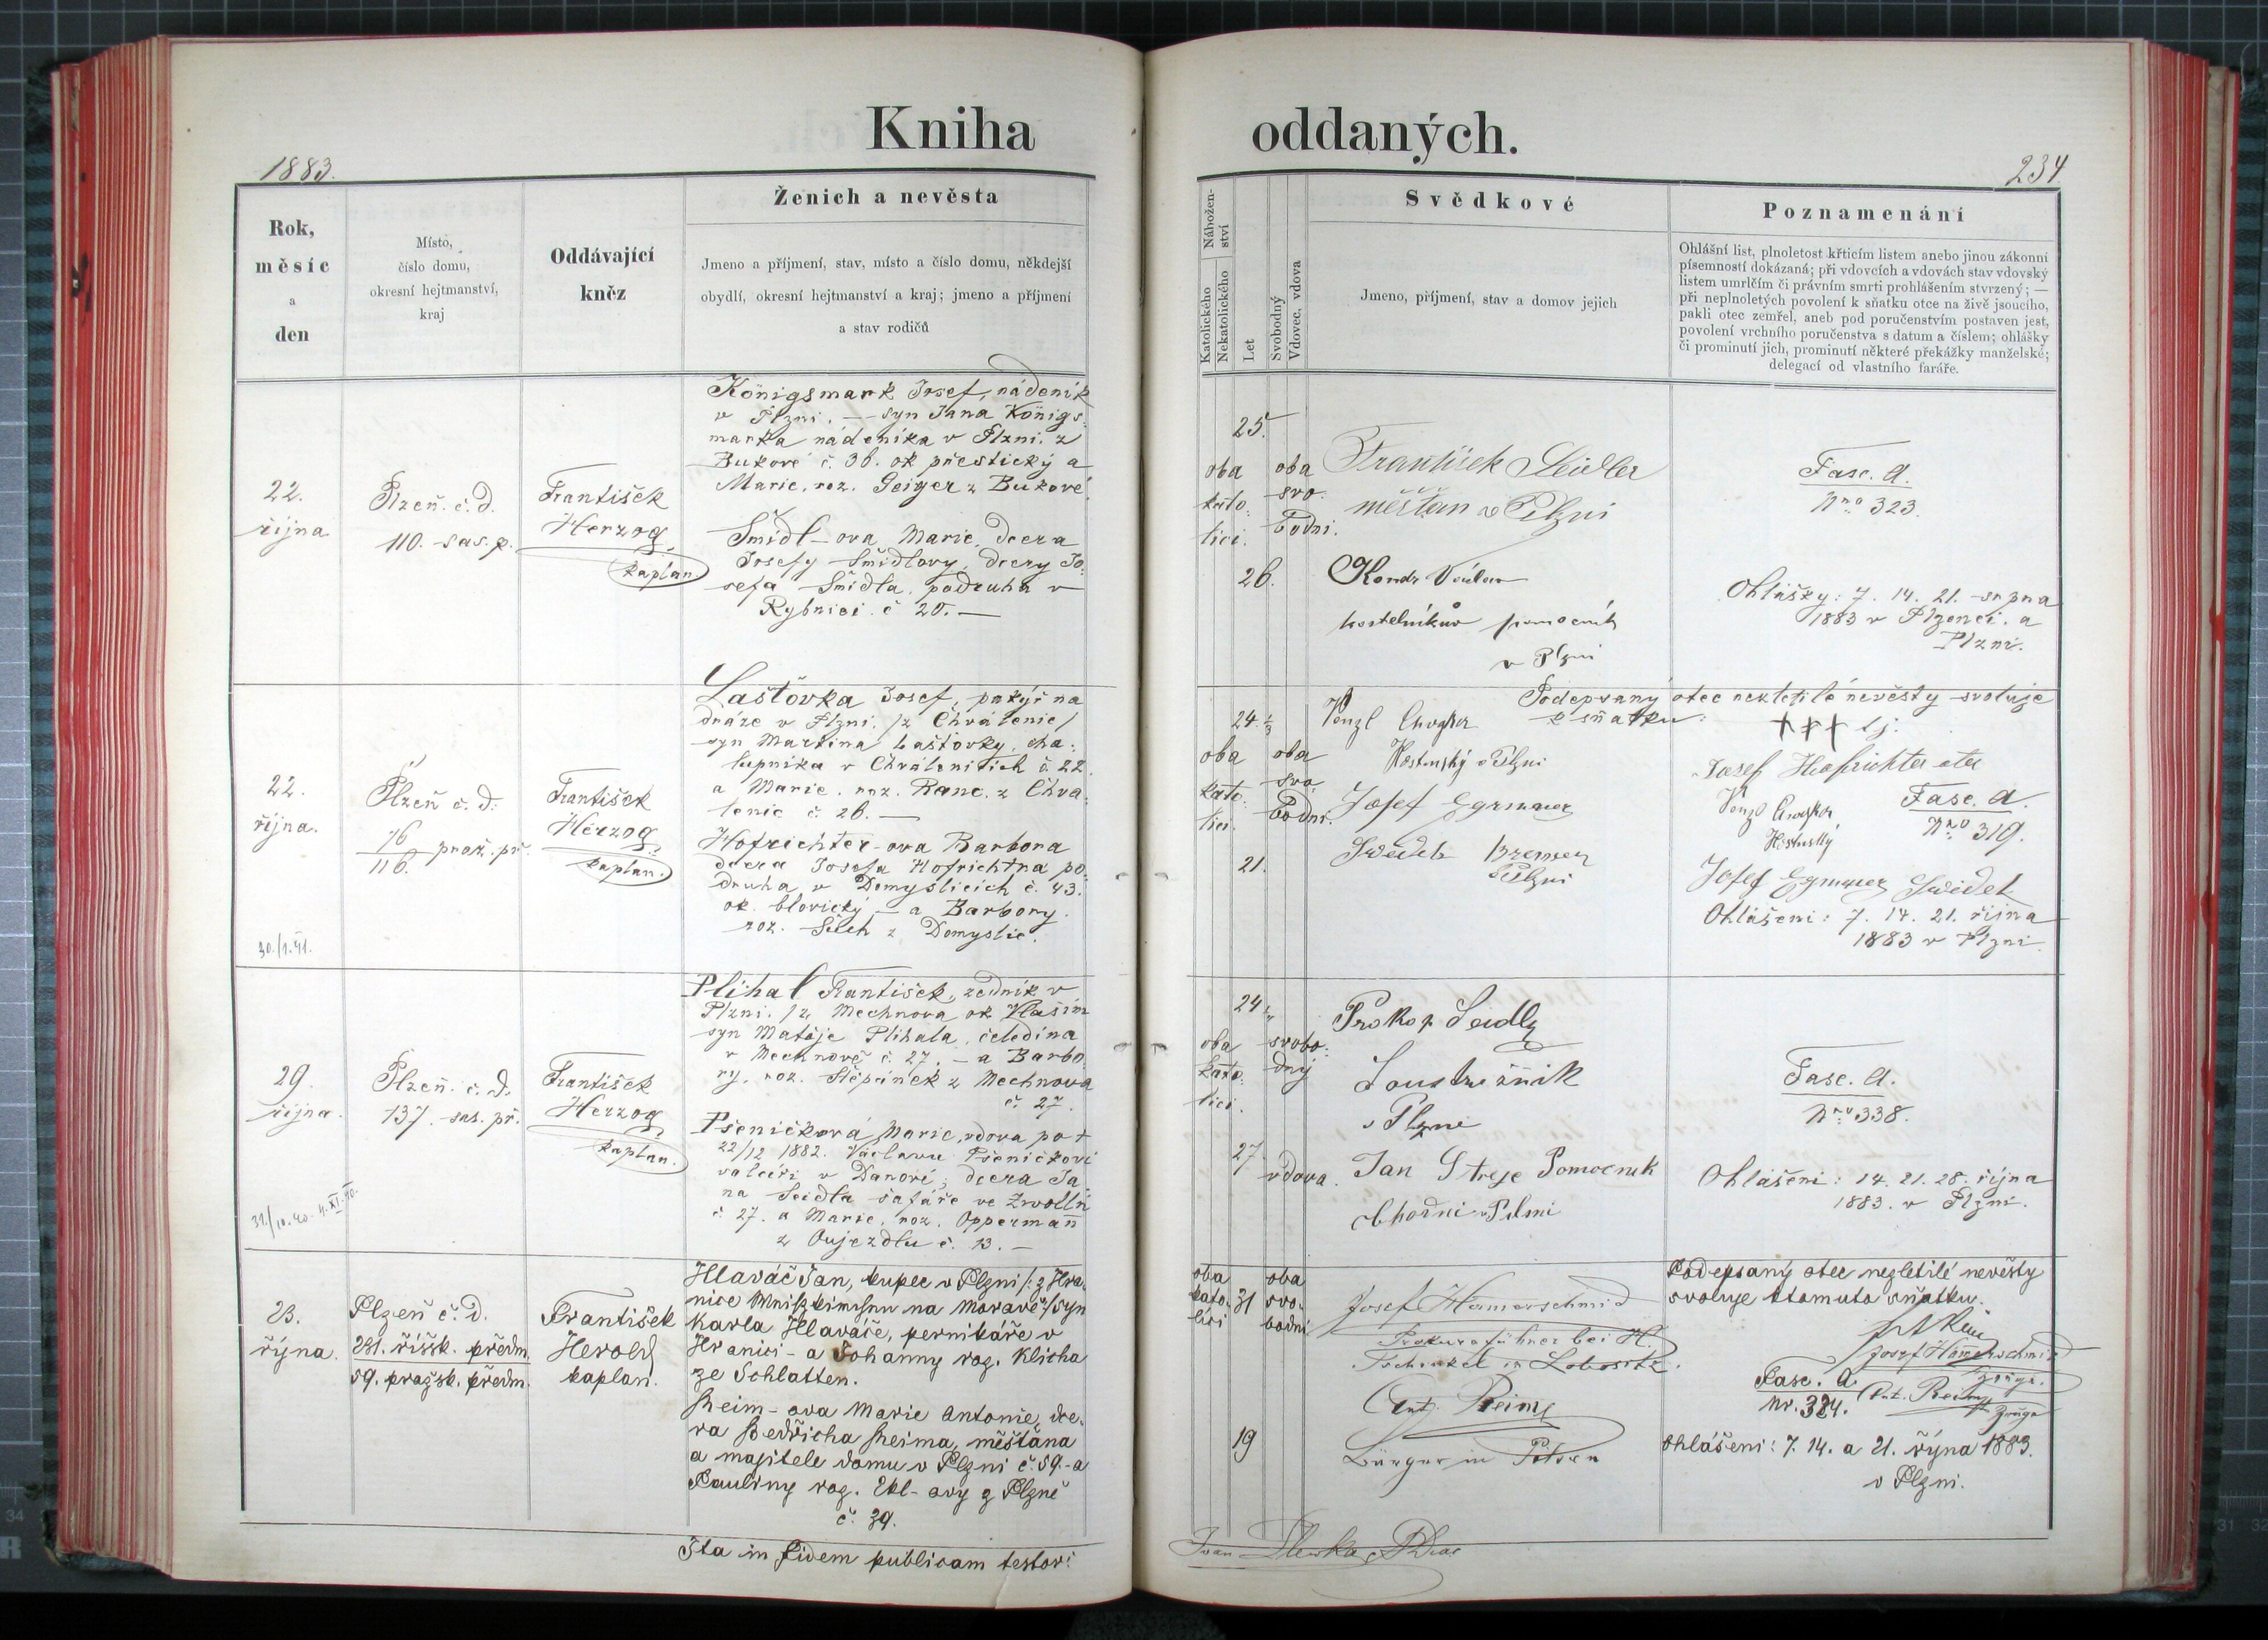 Kniha oddaných.
1883.
234.
Rok,
měsíc
a
den
Místo,
číslo domu,
okresní hejtmanství,
kraj
Oddávající
kněz
Ženich a nevěsta
Jmeno a příjmení, stav, místo a číslo domu, někdejší
obydlí, okresní hejtmanství a kraj; jmeno a příjmení
a stav rodičů
Nábožen-
ství
Katolického
Nekatolického
Let
Svobodný
Vdovec, vdova
Svědkové
Jmeno, příjmení, stav a domov jejich
Poznamenání
Ohlášní list, plnoletost křticím listem anebo jinou zákonní
písemností dokázaná; při vdovcích a vdovách stav vdovský
listem umrlčím či právním smrti prohlášením stvrzený; —
při neplnoletých povolení k sňatku otce na živě jsoucího,
pakli otec zemřel, aneb pod poručenstvím postaven jest,
povolení vrchního poručenstva s datum a číslem; ohlášky
či prominutí jich, prominutí některé překážky manželské;
delegací od vlastního faráře.
22.
října
Plzeň. č. d.
110. sas. p.
František
Herzog
kaplan.
Königsmark Josef, nádeník
v Plzni. — syn Jana Königs-
marka nádeníka v Plzni. z
Bukové č. 36. ok přestický a
Marie, roz. Geiger z Bukové.
Šmidl-ova Marie, dcera
Josefy Šmidlovy, dcery Jo-
sefa Šmidla, podruha v
Rybnici č 20. —
25.
oba
kato-
lící.
oba
svo-
bodni.
26.
František Seidler
měšťan v Plzni
kostelníkův pomocník
v Plzni
Fasc. A.
Nro 323.
Ohlášky: 7. 14. 21. srpna
1883 v Plzenci. a
Plzni.
22.
října.
30./1.41.
Plzeň č. d.
76
116. praž. př.
František
Herzog
kaplan.
Laštovka Josef, pakýř na
dráze v Plzni. /z Chválenic/
syn Martina Laštovky, cha-
lupníka v Chválenicích č. 22
a Marie. roz. Ranc. z Chvá-
lenic č. 26. —
Hofrichter-ova Barbora
dcera Josefa Hofrichtra po-
druha v Domyslicích č. 43.
ok. blovický — a Barbory.
roz. Šilh z Domyslic.
24.
oba
kato-
líci.
oba
svo-
bodni.
21.
Venzl
Hostinský v Plzni
Josef
Plzni
Podepsaný otec nezletilé nevěsty svoluje
k sňatku:
+++
Josef Hofrichter otec
Venzl
Hostinský
Fasc. A.
Nro 319.
Josef
Ohlášeni: 7. 14. 21. října
1883 v Plzni.
29.
října.
31./10.40. 4.XI.40.
Plzeň. č. d.
137. sas. př.
František
Herzog
kaplan.
Plihal František, zedník v
Plzni. /z Mechnova ok Vlaším
syn Matěje Plihala, čeledína
v Mechnově č. 27. — a Barbo-
ry, roz. Štěpánek z Mechnova
č. 27.
Pšeničková Marie, vdova po +
22/12 1882. Václavu Pšeničkovi
valcíři v Danové, dcera Ja-
na Seidla šafáře ve Zwolln
č 27. a Marie, roz. Oppermañ
z Oujezdlu č. 13. —
24
oba
kato-
líci.
svobo-
dný
27.
vdova.
Prokop Seidlz
Soustružník
v Plzni
Jan Streje Pomocnik
obchodni v Plzni
Fasc. A.
Nro 338.
Ohlášeni: 14. 21. 28. října
1883. v Plzni.
23.
října.
Plzeň č. d.
281. říšsk. předm.
59. pražsk. předm.
František
Herold
kaplan.
Hlaváč Jan, kupec v Plzni /: z Hra-
nice na Moravě :/ syn
Karla Hlaváče, pernikáře v
Hranici - a Johanny roz. Klicha
ze Schlatten.
Rheim-ova Marie Antonie, dce-
ra Bedřicha Rheima, měšťana
a majitele domu v Plzni č. 59. - a
Pauliny roz. Ekl-ovy z Plzně
č. 39.
oba
kato-
líci
31
oba
svo-
bodni
19
Josef Hamerschmid
Prokuraführer bei H.
Tschinkel in Lobositz.
Ant. Reimz
Bürger in Pilsen
Podepsaný otec nezletilé nevěsty
svoluje k tomuto sňatku.
Josef Hamerschmid
Zeuge.
Ant. Reimz
Zeuge
Fasc. A.
Nr. 324.
Ohlášeni: 7. 14. a 21. října 1883.
v Plzni.
Ita in fidem publicam testor: